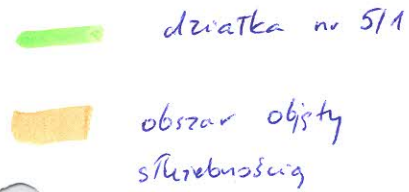 działka nr 5/1
obszar objęty
służebnością